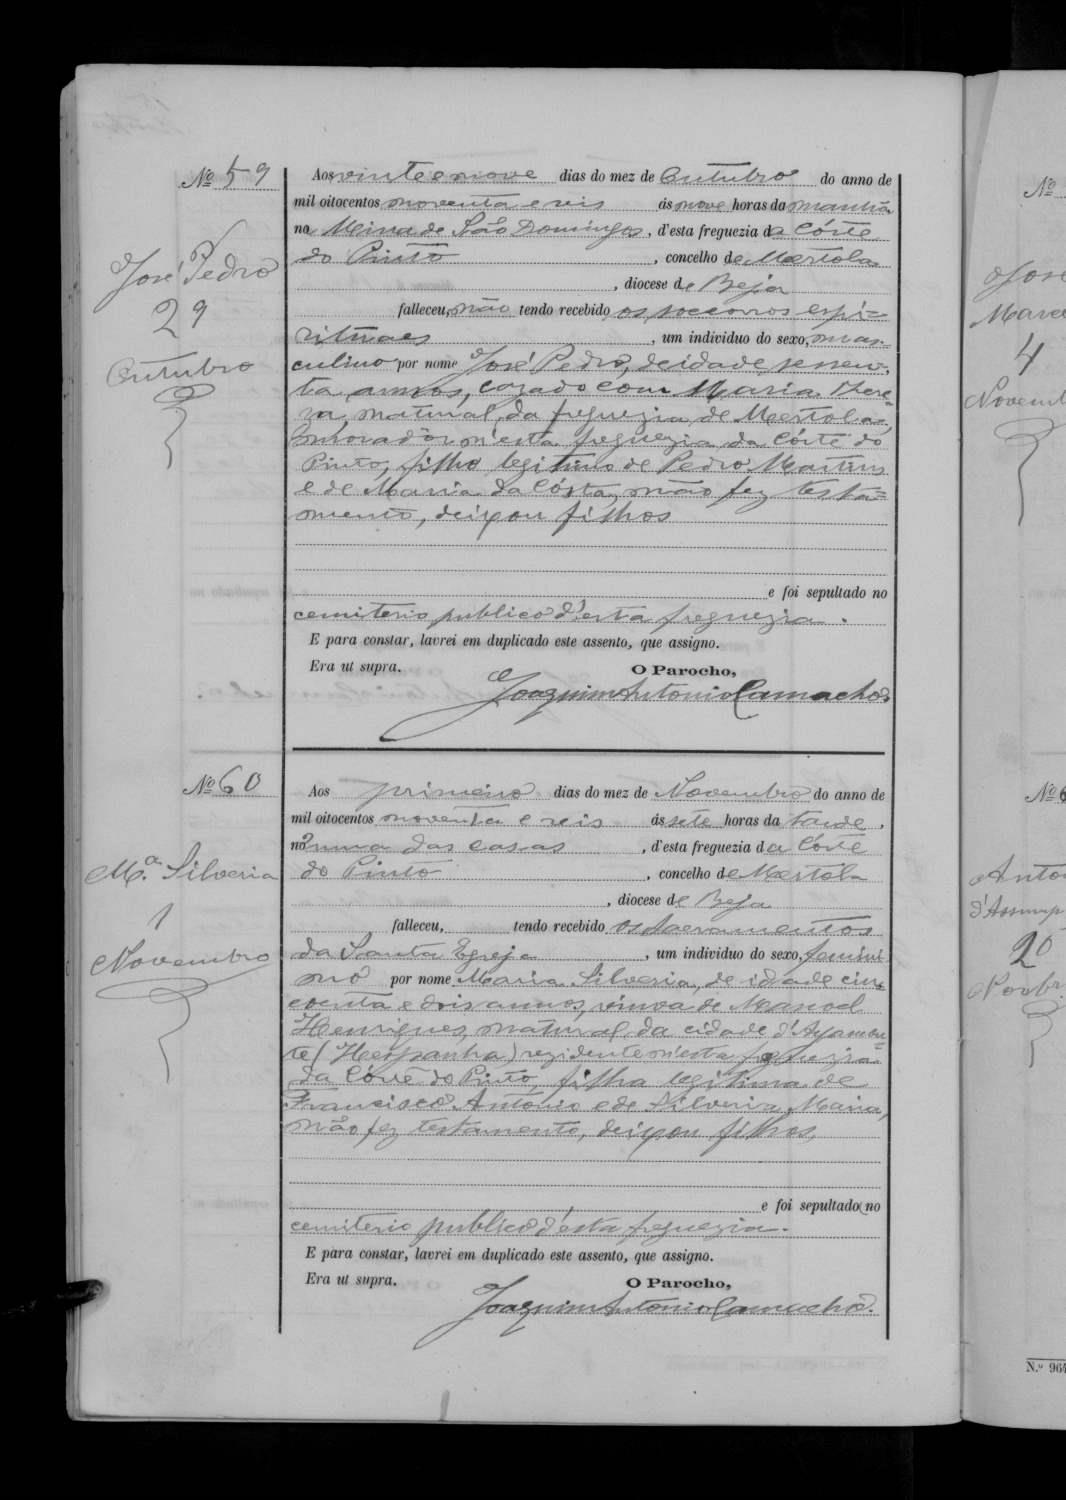 Nº 59
José Pedro
29
Outubro
Aos vinte e nove dias do mez de Outubro do anno de
mil oitocentos noventa e seis ás nove horas da manhã
na Meina de São Domingos, d'esta freguezia da Córte
do Pinto, concelho de Mertola
, diocese de Beja
falleceu, não tendo recebido os soccorros espi=
rituaes, um individuo do sexo, mas=
culino por nome José Pedro, de idade sessen=
ta annos, cazado com Maria There=
za, natural da freguezia de Mertola,
morador n'esta freguezia da Córte do
Pinto, filho legitimo de Pedro Martins
e de Maria da Cósta, não fez testa=
mento, deixou filhos
e foi sepultado no
cemiterio publico d'esta freguezia.
E para constar, lavrei em duplicado este assento, que assigno.
Era ut supra.
O Parocho,
Joaquim Antonio Camacho
Nº 60
Mª. Silveria
1
Novembro
Aos primeiro dias do mez de Novembro do anno de
mil oitocentos noventa e seis ás sete horas da tarde,
n'uma das casas, d'esta freguezia da Córte
do Pinto, concelho de Mertola
, diocese de Beja
falleceu, tendo recebido os Sacramentos
da Santa Egreja, um individuo do sexo, femini
no por nome Maria Silveria, de idade cin
coenta e dois annos, viuva de Manoel
Henriques, natural da cidade d'Ayamon=
te (Hespanha) rezidente n'esta freguezia
da Córte do Pinto, filha legitima de
Francisco Antonio e de Silveria Maria,
não fez testamento, deixou filhos,
e foi sepultado no
cemiterio publico d'esta freguezia.
E para constar, lavrei em duplicado este assento, que assigno.
Era ut supra.
O Parocho,
Joaquim Antonio Camacho.
Nº
José
4
Nº 6
20
N.º 964